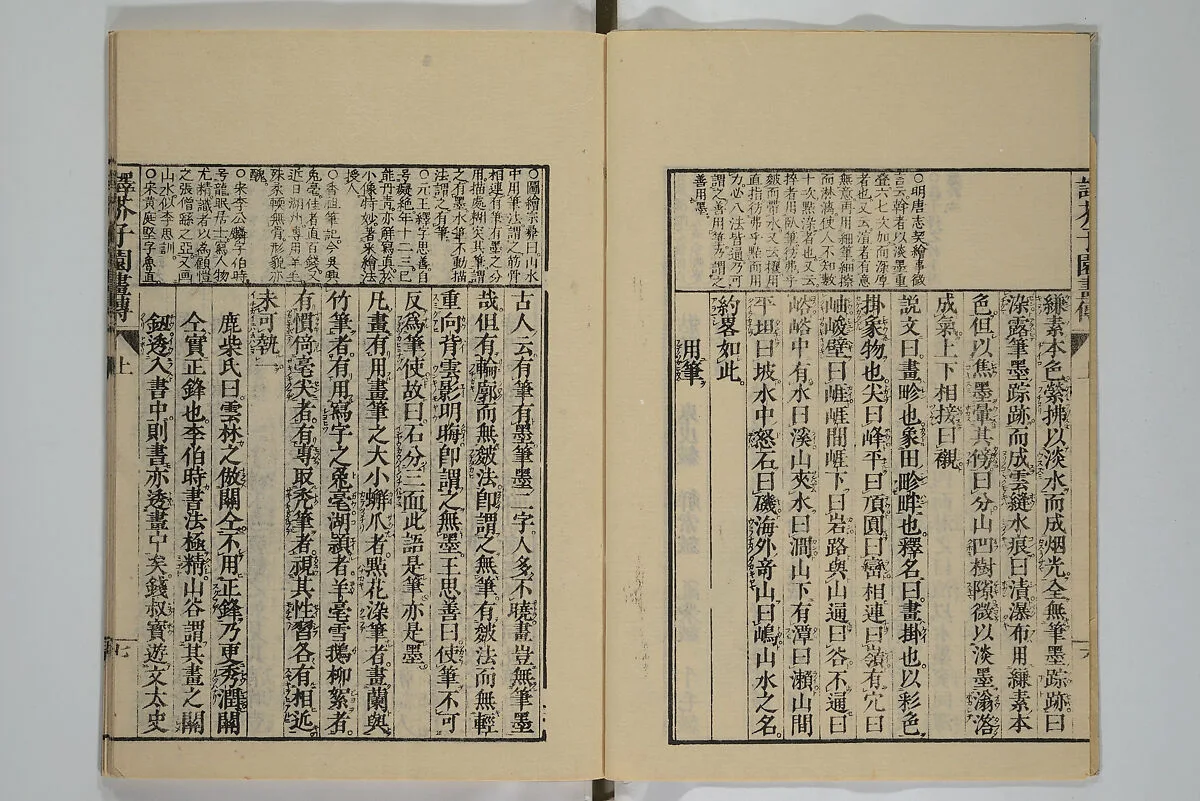 縑素本色縈拂以淡水而成烟光全無筆墨踪跡曰
染露筆墨踪跡而成雲縫水痕曰漬瀑布用縑素本
色但以焦墨暈其傍曰分山凹樹隙微以淡墨滃溚
成氣上下相接曰襯
説文曰畫畛也象田畛畔也釋名曰畫掛也以彩色
掛象物也尖曰峰平曰頂圓曰巒相連曰嶺有穴曰
岫峻壁曰崖崖間崖下曰岩路與山通曰谷不通曰
峪峪中有水曰溪山夾水曰澗山下有潭曰瀨山間
平坦曰坡水中怒石曰磯海外奇山曰嶋山水之名
約畧如此
用筆
○明唐志契繪事微
言云斡者以淡墨重
疊六七次加而深厚
者也又云渲者有意
無意再用細筆細擦
而淋漓使人不知數
十次點染者也又云
捽者用臥筆彷彿乎
皴而帶水又云擢用
直指彷彿乎點而用
力必八法皆通乃可
謂之善用筆乃謂之
善用墨
古人云有筆有墨筆墨二字人多不曉畫豈無筆墨
哉但有輪廓而無皴法即謂之無筆有皴法而無輕
重向背雲影明晦即謂之無墨王思善曰使筆不可
反為筆使故曰石分三面此語是筆亦是墨
凡畫有用畫筆之大小蠏爪者點花染筆者畫蘭與
竹筆者有用寫字之兔毫湖頴者羊毫雪鵝柳絮者
有慣倚毫尖者有專取禿筆者視其性習各有相近
未可執一
鹿柴氏曰雲林之倣關仝不用正鋒乃更秀潤關
仝實正鋒也李伯時書法極精山谷謂其畫之關
鈕透入書中則書亦透畫中矣錢叔寶遊文太史
○圖繪宗彜曰山水
中用筆法謂之筋骨
相連有筆有墨之分
用描處糊突其筆謂
之有墨水筆不動描
法謂之有筆
○元王繹字思善自
號癡絕年十二三已
能丹青亦解寫真於
小像特妙著采繪法
授人
○香祖筆記今吳興
兔毫佳者直百錢又
近日湖州專用羊毛
殊柔輭無骨形貌亦
醜
○宋李公麟字伯時
号龍眠居士寫人物
尤精識者以為顧愷
之張僧繇之亞又画
山水似李思訓
○宋黄庭堅字魯直
譯芥子園畫傳
上
七